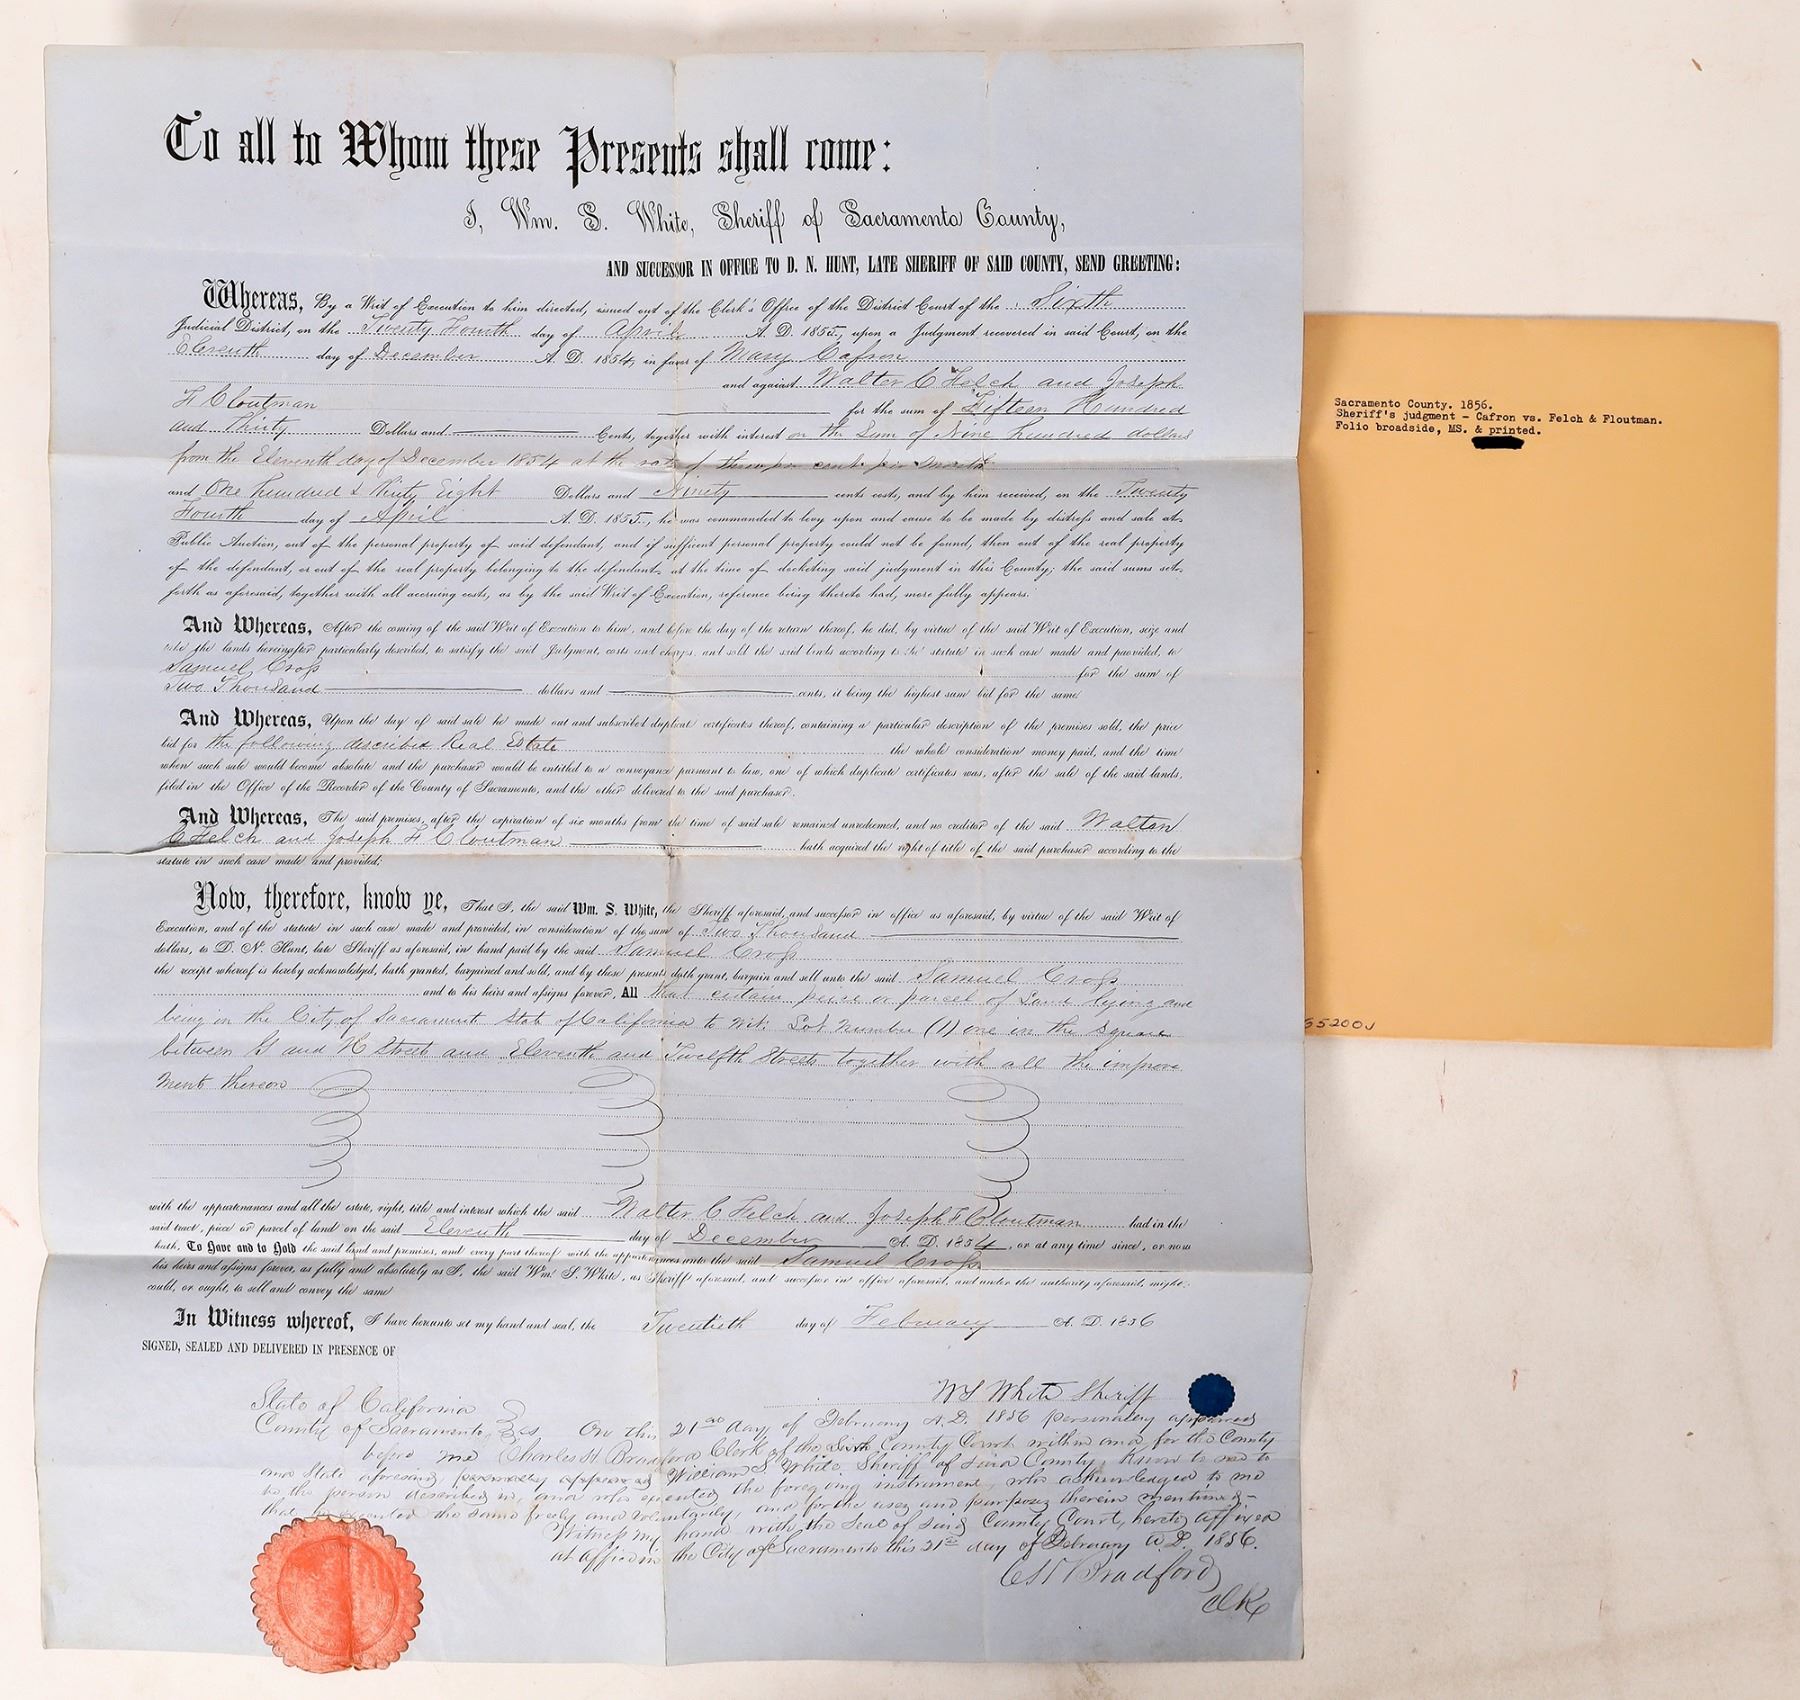 To all to Whom these Presents shall come:
I, Wm. S. White, Sheriff of Sacramento County,
AND SUCCESSOR IN OFFICE TO D. N. HUNT, LATE SHERIFF OF SAID COUNTY, SEND GREETING:
Whereas, By a Writ of Execution to him directed, issued out of the Clerk's Office of the District Court of the Sixth
Judicial District, on the Twenty Fourth day of April A. D. 1855, upon a Judgment recovered in said Court, on the
Eleventh day of December A. D. 1854, in favor of Mary Cafron
and against Walter C Felch and Joseph
F Cloutman for the sum of Fifteen Hundred
and Thirty Dollars and Cents, together with interest on the Sum of Nine hundred dollars
from the Eleventh day of December 1854 at the rate of three per cent per Month
and One hundred & Thirty Eight Dollars and Ninety cents costs, and by him received, on the Twenty
Fourth day of April A. D. 1855, he was commanded to levy upon and cause to be made by distress and sale at
Public Auction, out of the personal property of said defendant, and if sufficent personal property could not be found, then out of the real property
of the defendant, or out of the real property belonging to the defendants at the time of docketing said judgment in this County; the said sums set
forth as aforesaid, together with all accruing costs, as by the said Writ of Execution, reference being thereto had, more fully appears.
And Whereas, After the coming of the said Writ of Execution to him, and before the day of the return thereof, he did, by virtue of the said Writ of Execution, seize and
take the lands hereinafter particularly described, to satisfy the said Judgment, costs and charges, and sold the said lands according to the statute in such case made and provided, to
Samuel Cross for the sum of
Two Thousand dollars and cents, it being the highest sum bid for the same
And Whereas, Upon the day of said sale he made out and subscribed duplicate certificates thereof, containing a particular description of the premises sold, the price
bid for the following described Real Estate the whole consideration money paid, and the time
when such sale would become absolute and the purchaser would be entitled to a conveyance pursuant to law, one of which duplicate certificates was, after the sale of the said lands,
filed in the Office of the Recorder of the County of Sacramento, and the other delivered to the said purchaser.
And Whereas, The said premises, after the expiration of six months from the time of said sale remained unredeemed, and no creditor of the said Walter
C Felch and Joseph F Cloutman hath acquired the right of title of the said purchaser according to the
statute in such case made and provided;
Now, therefore, know ye, That I, the said Wm. S. White, the Sheriff aforesaid, and successor in office as aforesaid, by virtue of the said Writ of
Execution, and of the statute in such case made and provided, in consideration of the sum of Two Thousand
dollars, to D. N. Hunt, late Sheriff as aforesaid, in hand paid by the said Samuel Cross
the receipt whereof is hereby acknowledged, hath granted, bargained and sold, and by these presents doth grant, bargain and sell unto the said Samuel Cross
and to his heirs and assigns forever, All that certain piece or parcel of Land lying and
being in the City of Sacramento State of California to wit: Lot Number (1) one in the square
between G and H Street and Eleventh and Twelfth Streets together with all the improve
ments thereon
with the appurtenances and all the estate, right, title and interest which the said Walter C Felch and Joseph F Cloutman had in the
said tract, piece or parcel of land on the said Eleventh day of December A. D. 1854, or at any time since, or now
hath, To Have and to Hold the said land and premises, and every part thereof with the appurtenances unto the said Samuel Cross
his heirs and assigns forever, as fully and absolutely as I, the said Wm. S. White, as Sheriff aforesaid, and successor in office aforesaid, and under the authority aforesaid, might,
could, or ought, to sell and convey the same
In Witness whereof, I have hereunto set my hand and seal, the Twentieth day of February A. D. 1856
SIGNED, SEALED AND DELIVERED IN PRESENCE OF
WS White Sheriff
State of California
County of Sacramento, ss, On this 21st day of February A. D. 1856 personally appeared
before me Charles H. Bradford Clerk of the Sixth County Court within and for the County
and State aforesaid, personally appeared William S. White, Sheriff of said County, known to me to
be the person described in, and who executed the foregoing instrument, who acknowledged to me
that he executed the same freely and voluntarily, and for the uses and purposes therein mentioned
Witness my hand with the Seal of said County Court, hereto affixed
at office in the City of Sacramento this 21st day of February A. D. 1856.
CH Bradford
Clk
Sacramento County. 1856.
Sheriff's judgment - Cafron vs. Felch & Floutman.
Folio broadside, MS. & printed.